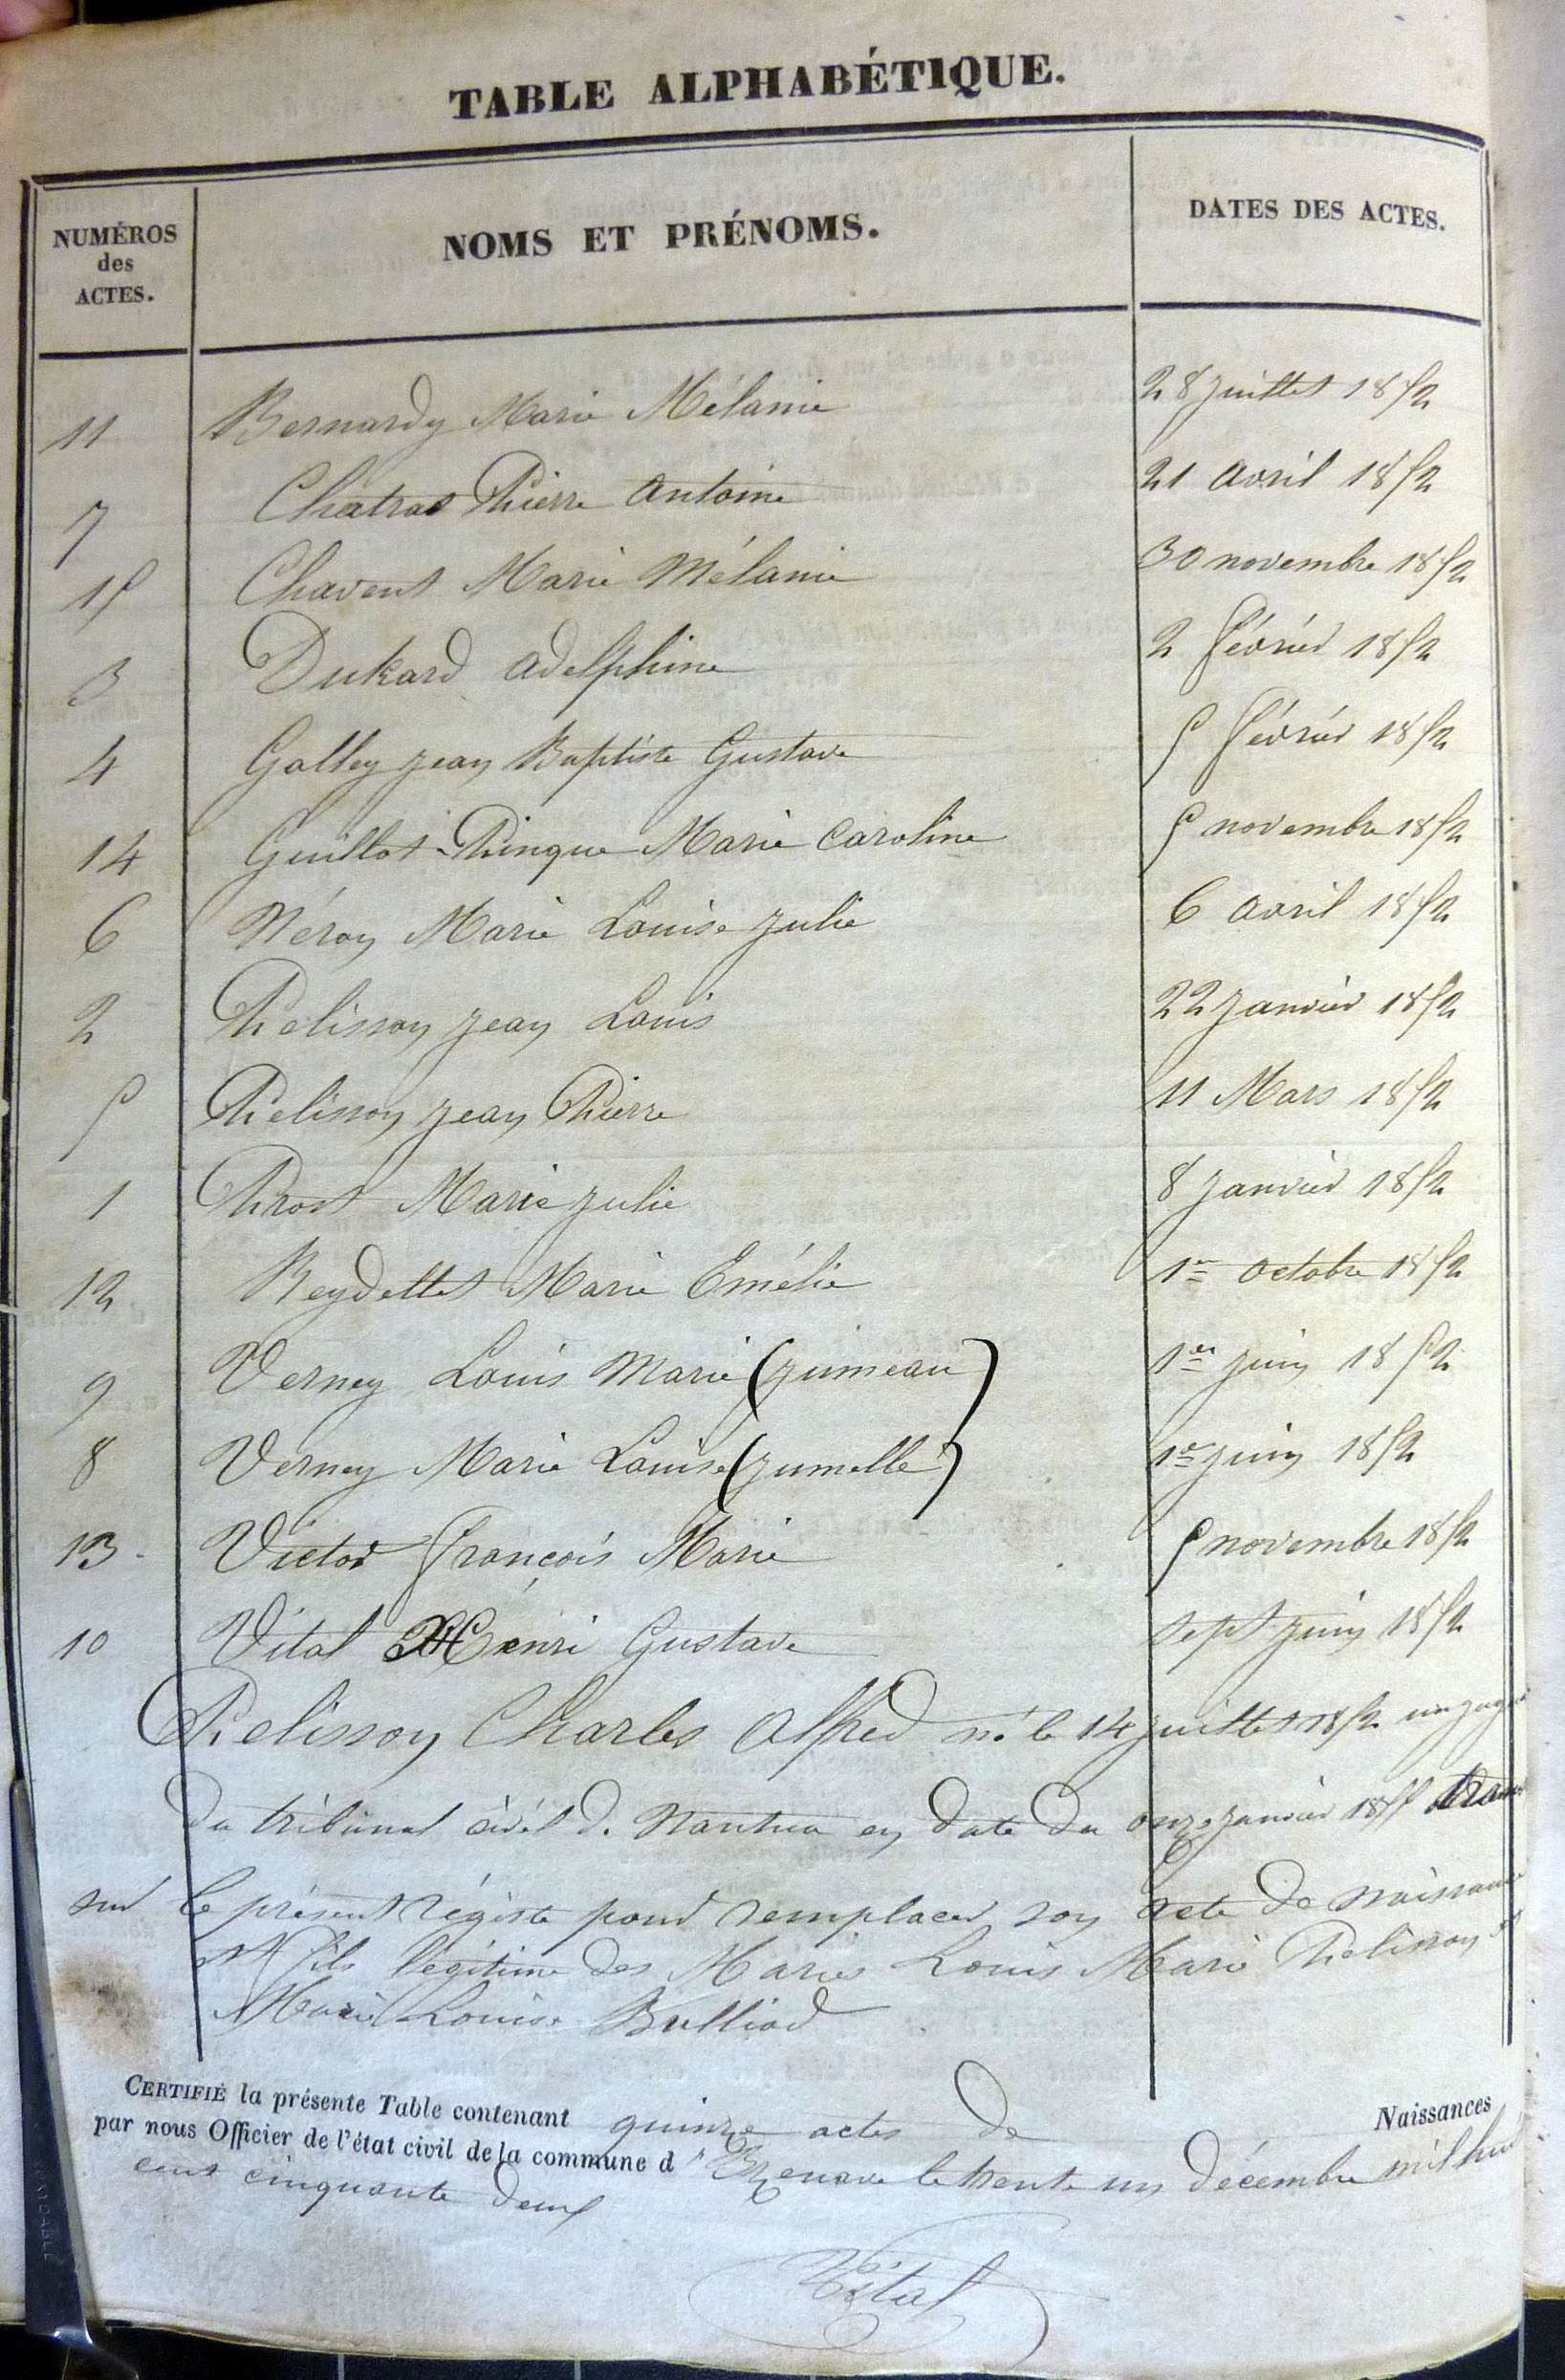 TABLE ALPHABÉTIQUE.
NUMÉROS des ACTES. NOMS ET PRÉNOMS. DATES DES ACTES.
11 Bernardy Marie Mélanie 28 juillet 1852
7 Chatrad Pierre antoine 21 avril 1852
15 Chavent Marie Mélanie 30 novembre 1852
3 Dukard adelphine 2 février 1852
4 Galley jean Baptiste Gustave 5 février 1852
14 Guillot-Pingue Marie caroline 5 novembre 1852
6 Néron Marie Louise julie 6 avril 1852
2 Pelisson jean Louis 22 janvier 1852
5 Pelisson jean Pierre 11 Mars 1852
1 Prost Marie julie 8 janvier 1852
12 Reydellet Marie Emélie 1er octobre 1852
9 Verney Louis Marie (jumeau) 1er juin 1852
8 Verney Marie Louise (jumelle) 1er juin 1852
13 Victor françois Marie 5 novembre 1852
10 Vital Henri Gustave sept juin 1852
Pelisson Charles Alfred né le 14 juillet 1852
du tribunal civil de Nantua en date du onze janvier 1855
sur le présent régistre pour remplacer son acte de naissance
fils légitime des Mariés Louis Marie Pelisson et
Marie Louise Bulliod
CERTIFIÉ la présente Table contenant quinze actes de Naissances
par nous Officier de l'état civil de la commune d Brenaz le trente un décembre mil huit
cent cinquante deux
Vital